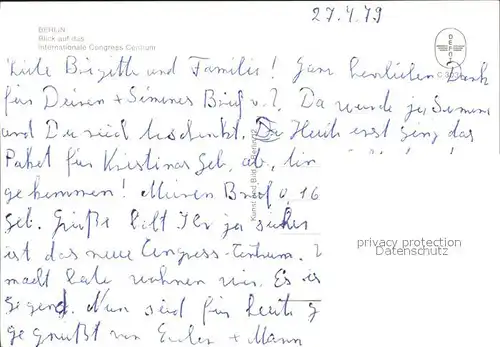 27.4.79
BERLIN
Blick auf das
Internationale Congress Centrum
DEFOT
Liebe Birgitt und Familie! Ganz herzlichen Dank
für Deinen + Simones Brief v. 7. Da wurde ja Simone
und Du reich beschenkt. Heute erst ging das
Paket für Kristinas Geb. ab, bin
gekommen! Meinen Brief v. 16
geb. Grüße habt Ihr ja sicher
ist das neue Congress-Centrum.
macht wohnen wir. Es is
Gegend. Nun seid für heute
gegrüßt von + Mann
Kunst und Bild
privacy protection
Datenschutz